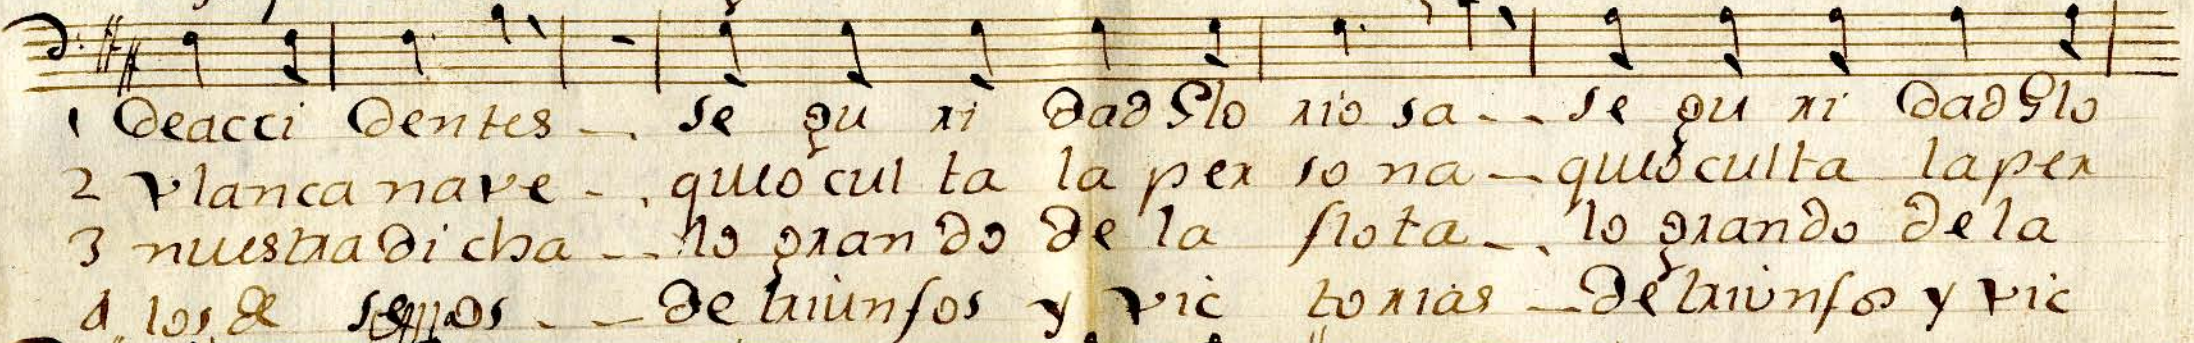 1 deacci dentes - . se gu ri dad Glo rio sa - - se gu ri dad Glo
2 vlanca nave - . queo cul ta la per so na - queocul ta laper
3 nuestra di cha - - lo gran do de la flo ta - . lo grando dela
4 los de - - de triunfos y vic torias - de triunfos y vic